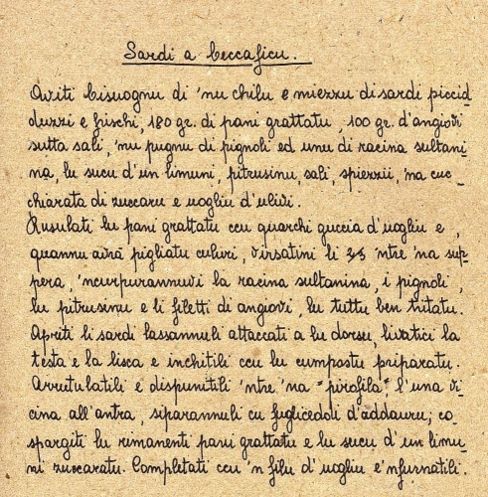 Sardi a beccaficu.
Aviti bisuognu di 'nu chilu e miezzu di sardi piccid
duzzi e frischi, 180 gr. di pani grattatu, 100 gr. d'angiovi
sutta sali, 'nu pugnu di pignoli ed unu di racina sultani
na, lu sucu d'un limuni, pitrusinu, sali, spiezzii, 'na cuc_
chiarata di zuccaru e uogliu d'ulivi.
Rusulati lu pani grattatu ccu quarchi guccia d'uogliu e,
quannu avrà pigliatu culuri, virsatini li 3/4 'ntre 'na sup
pera, 'ncurpurannuvi la racina sultanina, i pignoli,
lu pitrusinu e li filetti di angiovi, lu tuttu ben tritatu.
Apriti li sardi lassannuli attaccati a lu dorsu, livatici la
testa e la lisca e inchitili ccu lu cumpostu priparatu.
Arrutulatili e dispunitili 'ntre 'na "pirofila", l'una vi
cina all'antra, siparannuli cu fugliceddi d'addauru; co
spargiti lu rimanenti pani grattatu e lu sucu d'un limu
ni zuccaratu. Completati ccu 'n filu d'uogliu e 'nfurnatili.